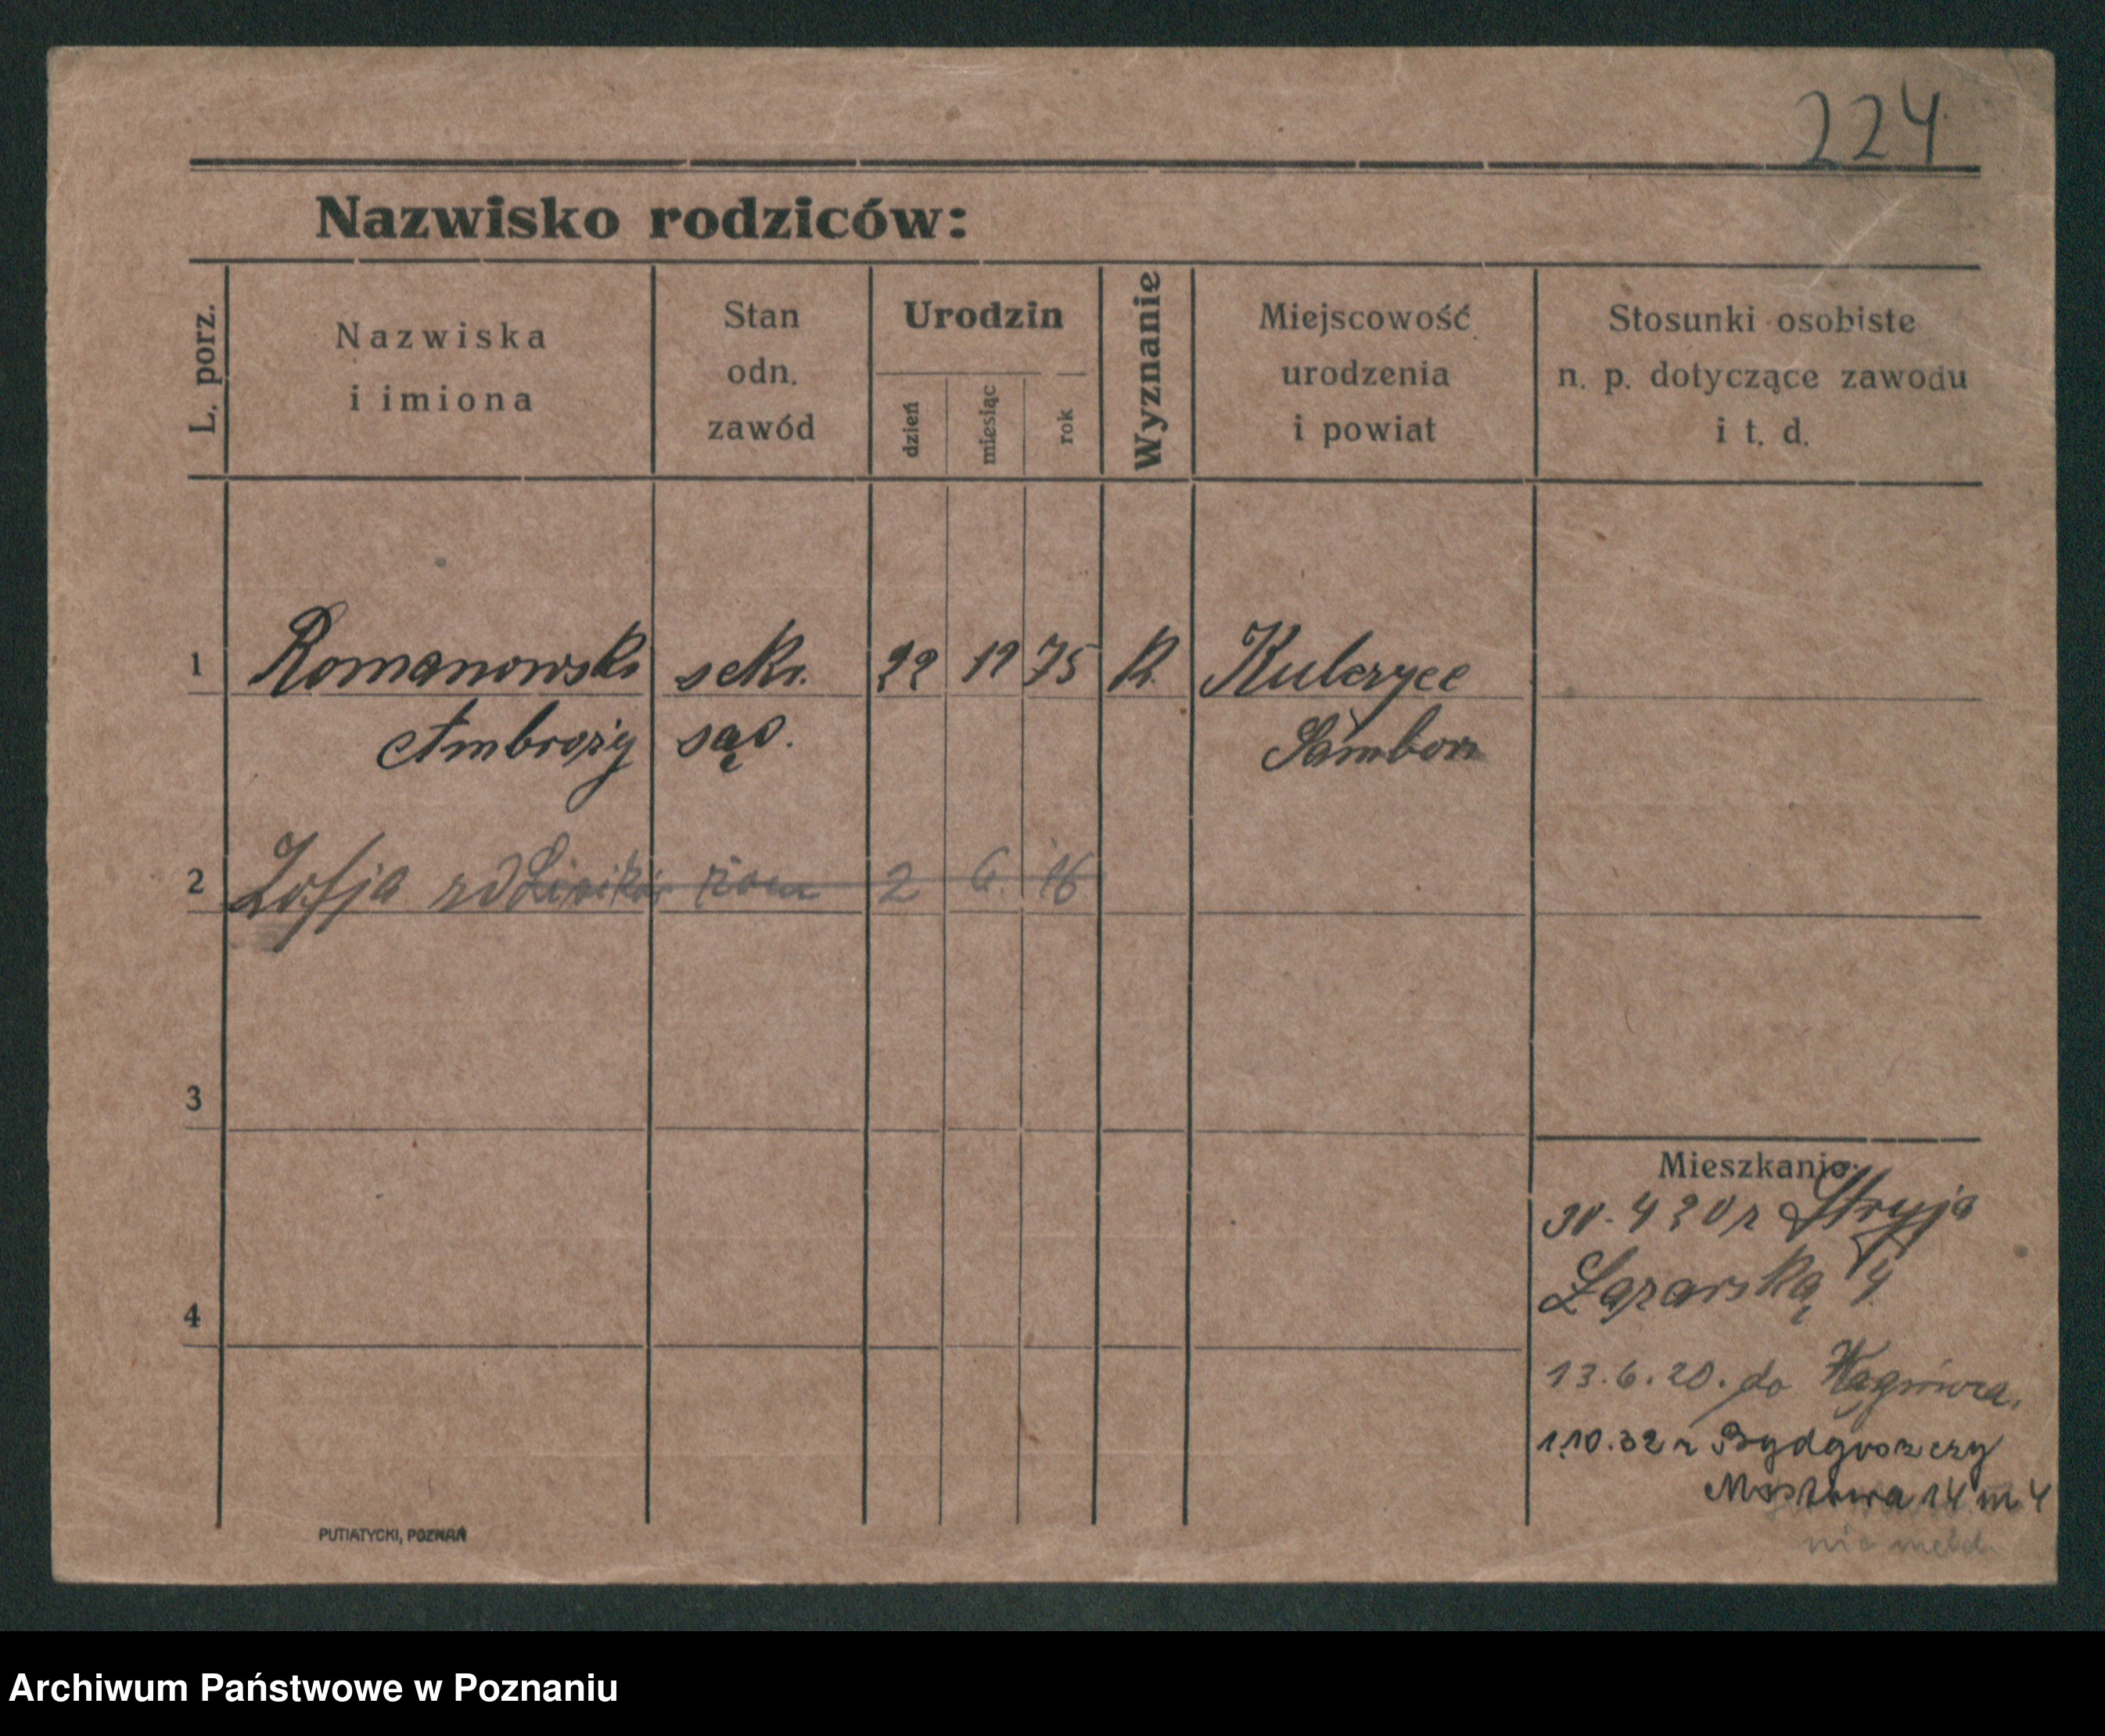 224
Nazwisko rodziców:
L. porz.
Nazwiska
i imiona
Stan
odn.
zawód
Urodzin
dzień
miesiąc
rok
Wyznanie
Miejscowość
urodzenia
i powiat
Stosunki osobiste
n. p. dotyczące zawodu
i t. d.
1 Romanowski sekr. 22 12 75 R. Kulczyce
Ambroży sąd. Sambor
2 Zofja żona 2 6 16
3
4
Mieszkanie
30.4 20 r Stryja
Łazarską 4
13.6.20. do Wągrówca,
1.10.32 z Bydgoszczy
Mostowa 14 m 4
nie meld.
PUTIATYCKI, POZNAŃ
Archiwum Państwowe w Poznaniu